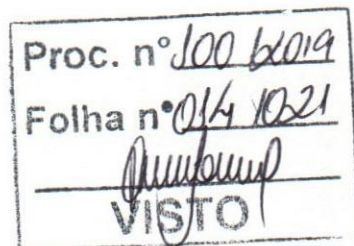 Proc. n° 100 /2019
Folha n° 014 1021
VISTO